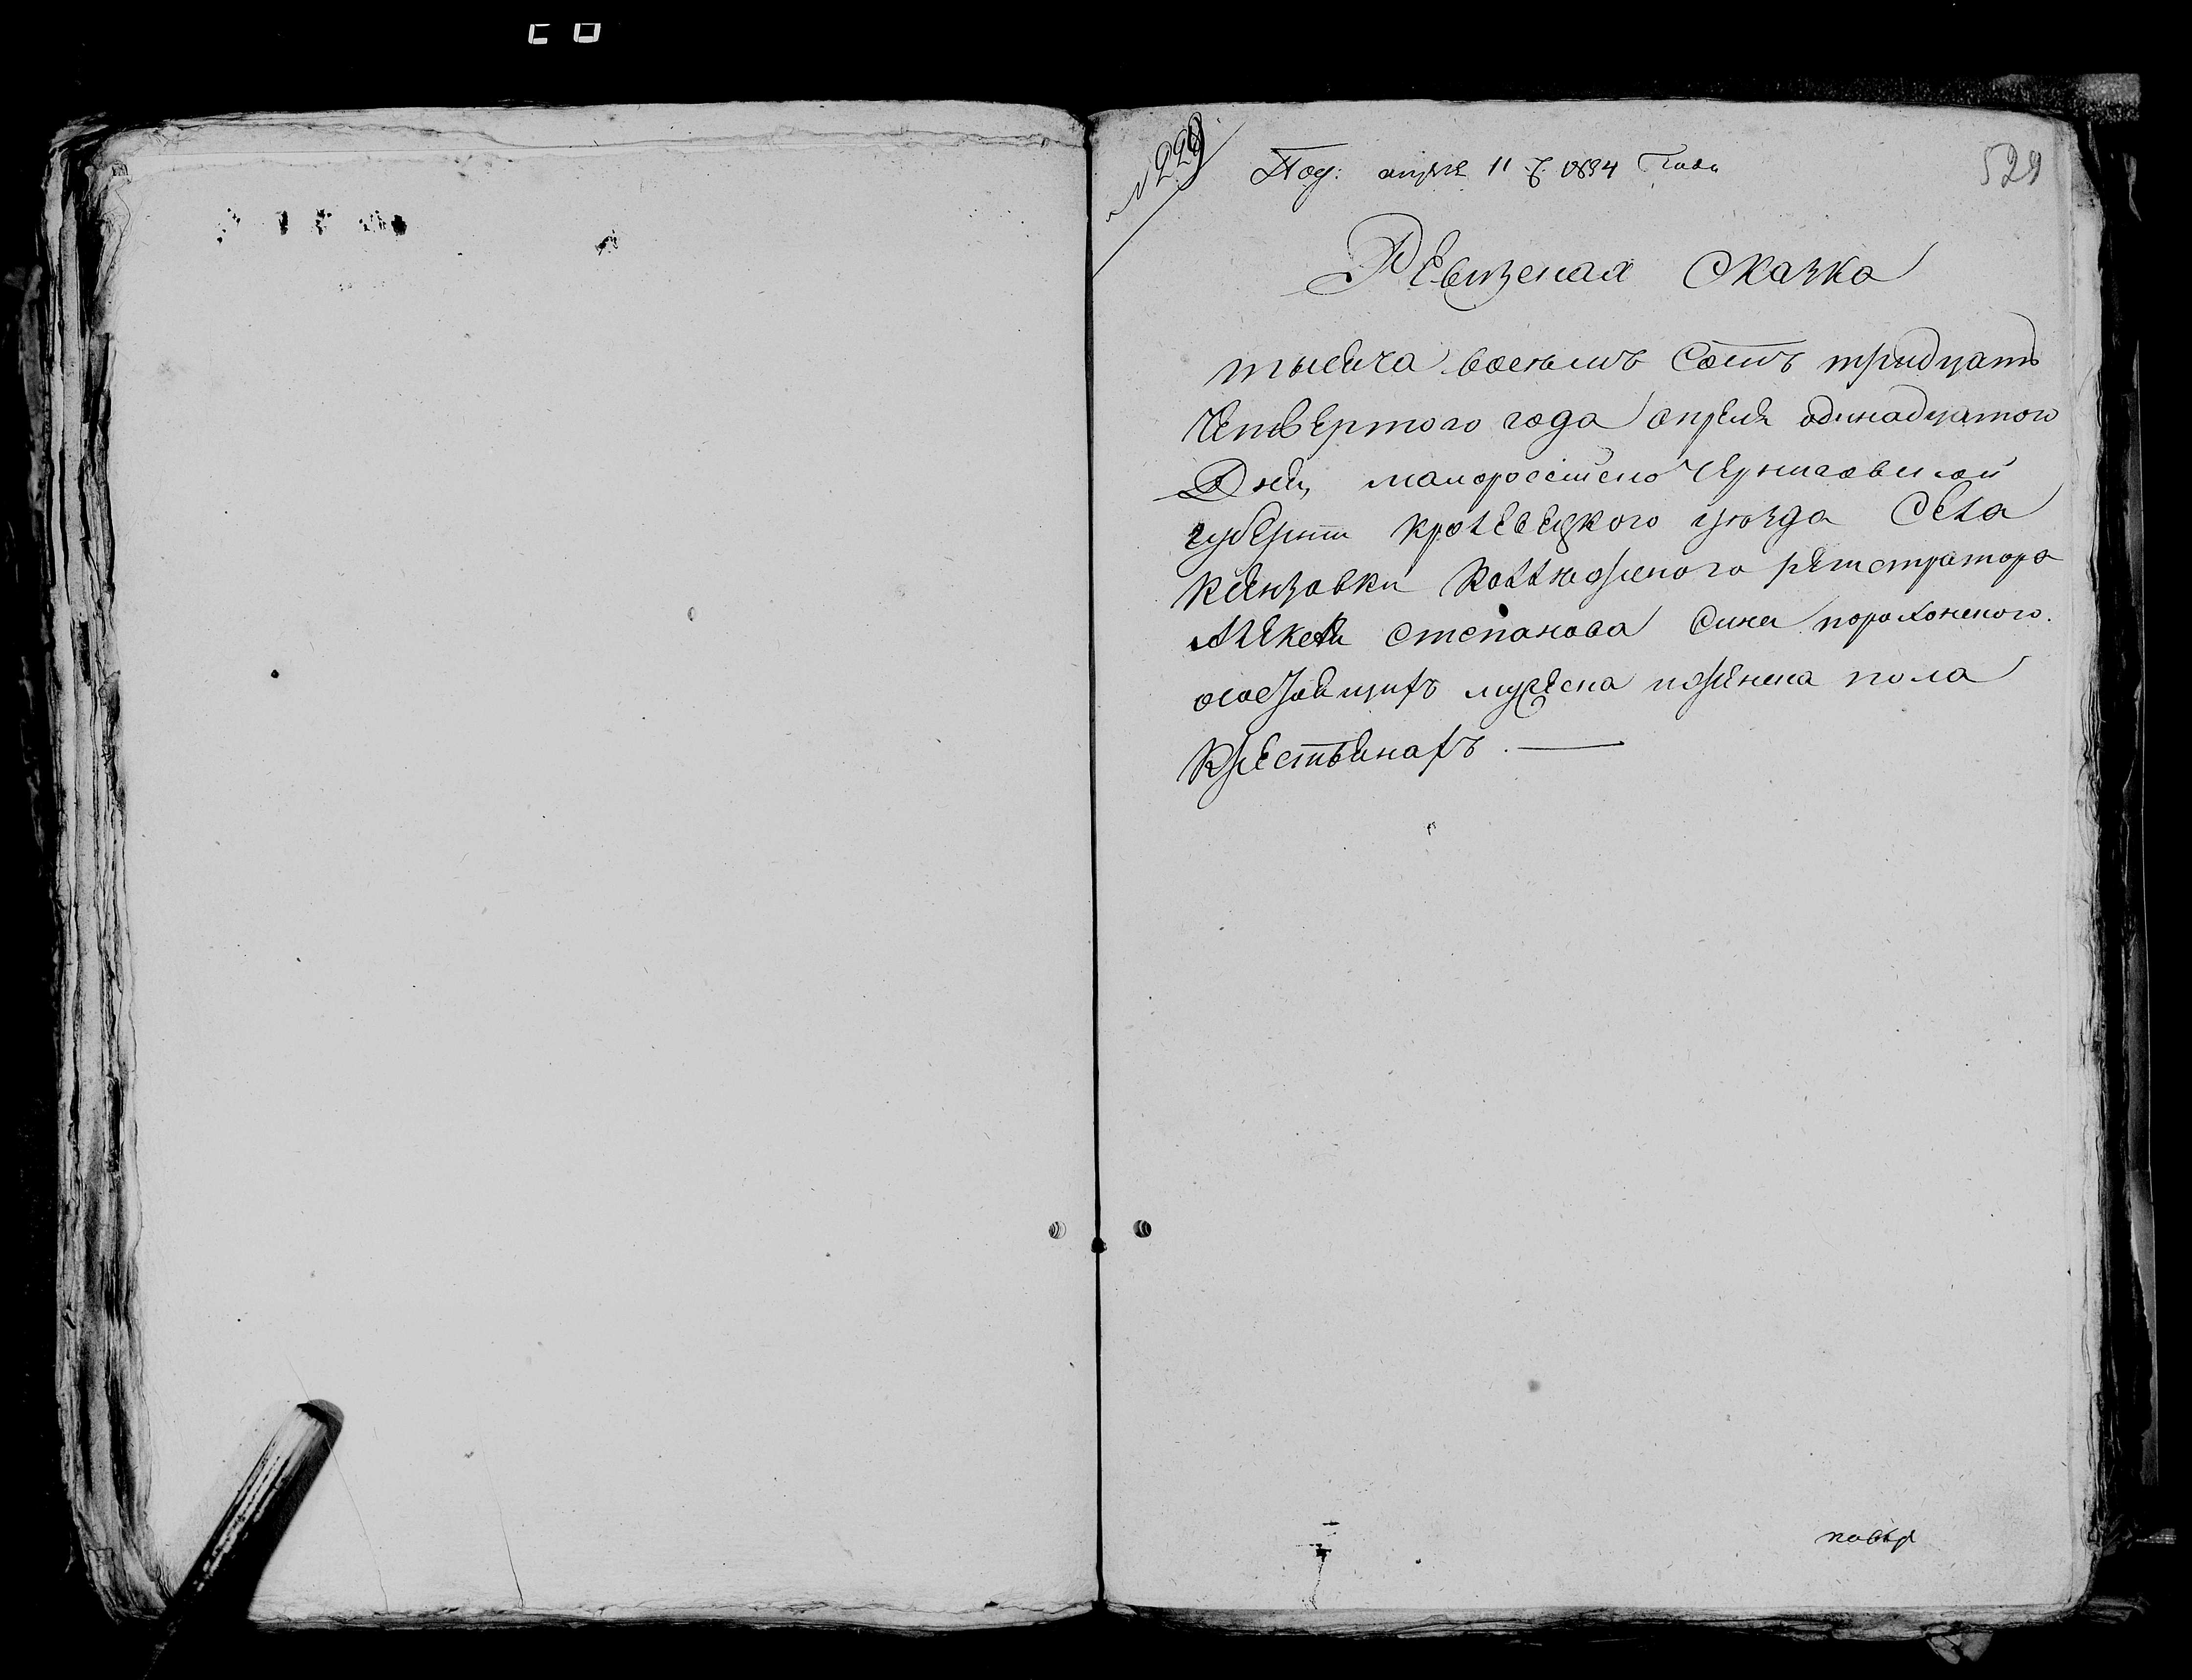 № 229
Под: апреля 11 д. 1834 года
529
Ревизская Сказка
тысяча восемъ Сотъ тридцать
Четвертого года апреля одинадцатого
Дня, малоросійско Черниговской
губерніи кролевецкого уюзда Села
Ксензовки Коллежского регистратора
Алексея степанова Сина порохонского.
осостоящихъ мужеска иженска пола
Крестьянахъ.
повер